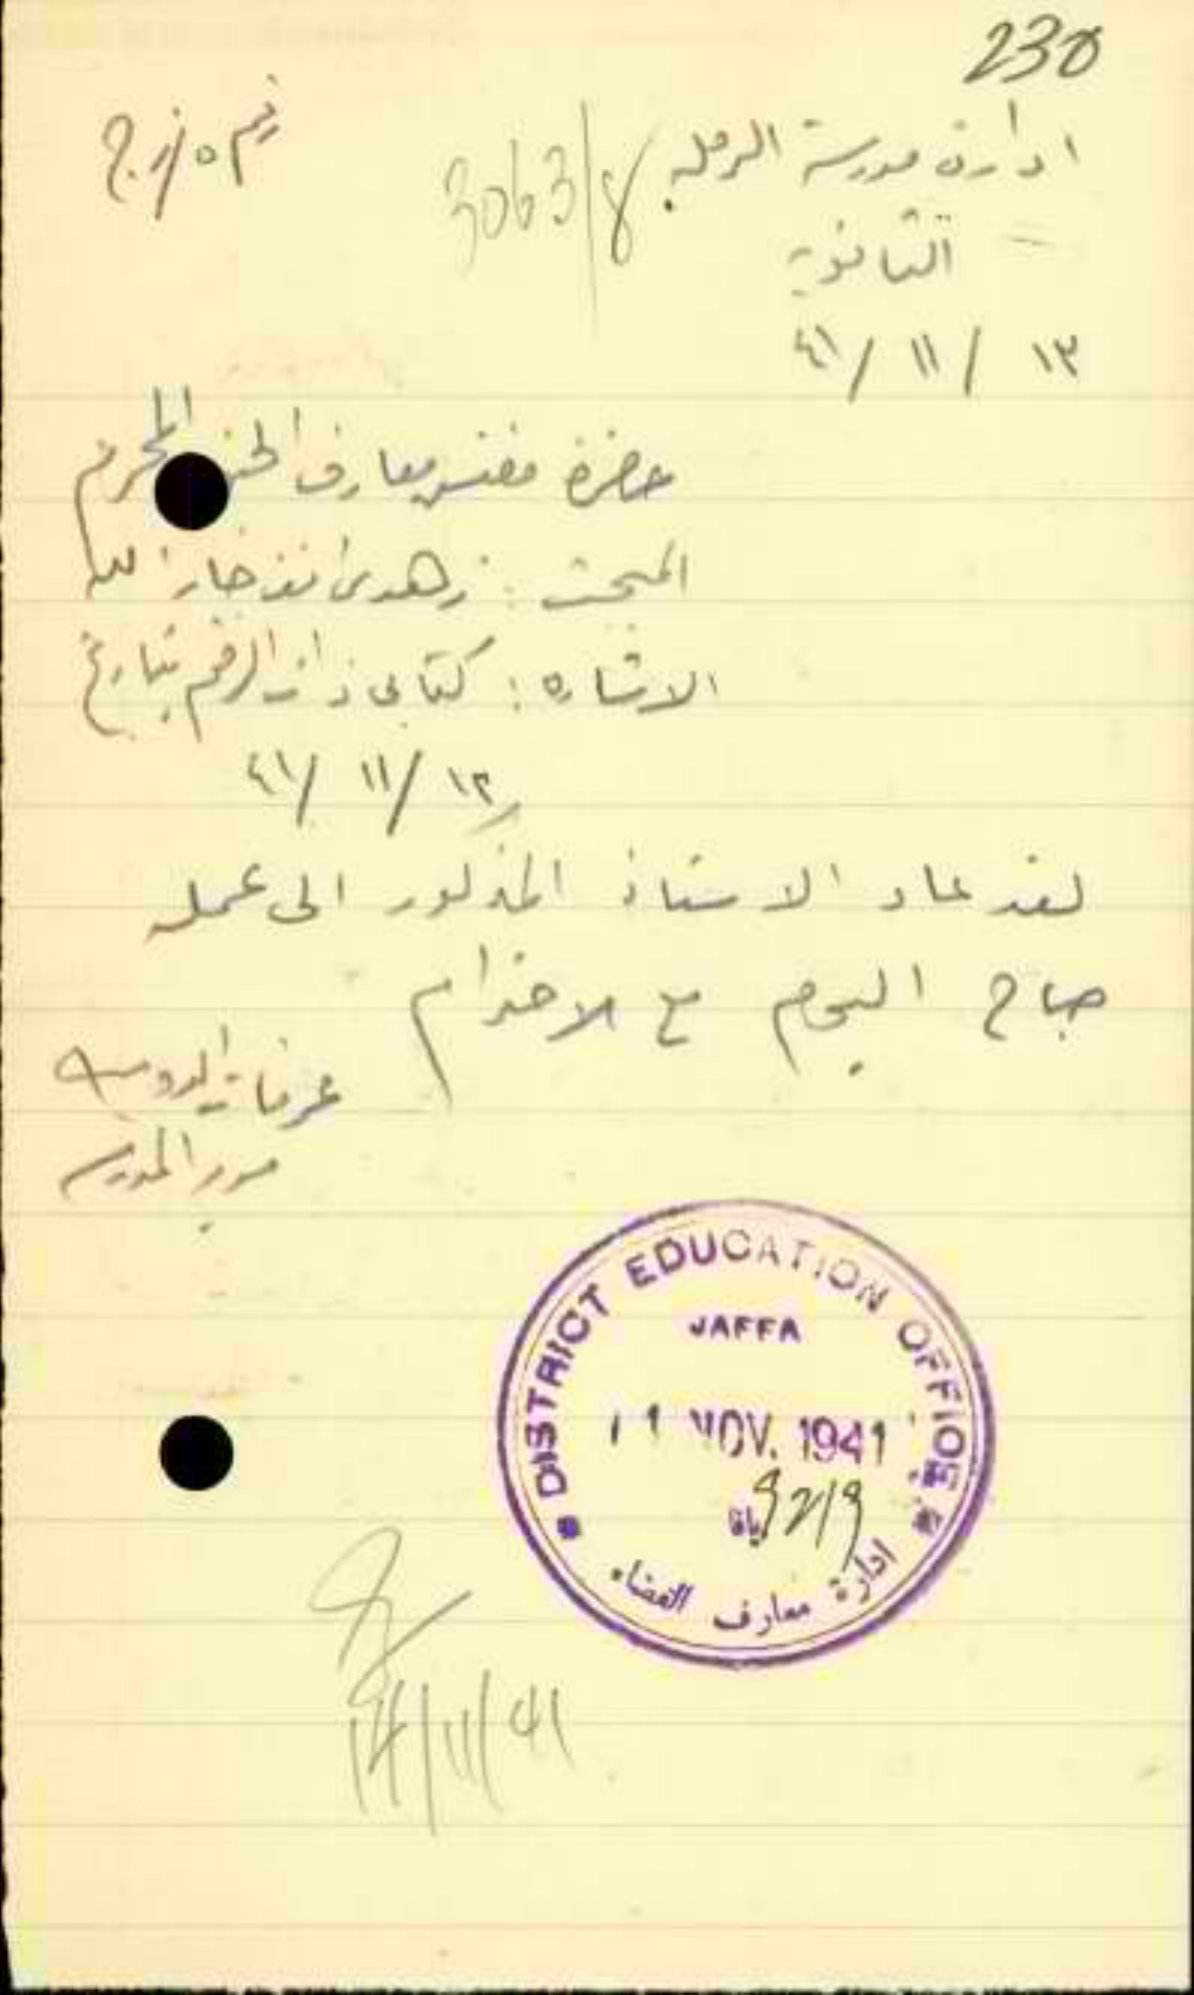 230
ادارة مدرسة الرملة
3063/8
الثانوية
١٣ / ١١ / ٤١
حضرة مفتش معارف المحترم
المبحث : زهدي افندي جار الله
الاشاره : كتابي ذات الرقم بتاريخ
١٢ / ١١ / ٤١
لقد عاد الاستاذ المذكور الى عمله
صباح اليوم مع الاحترام
عرفات
مدير المدرسة
DISTRICT EDUCATION OFFICE
JAFFA
11 NOV. 1941
9219
يافا
ادارة معارف القضاء
14/11/41